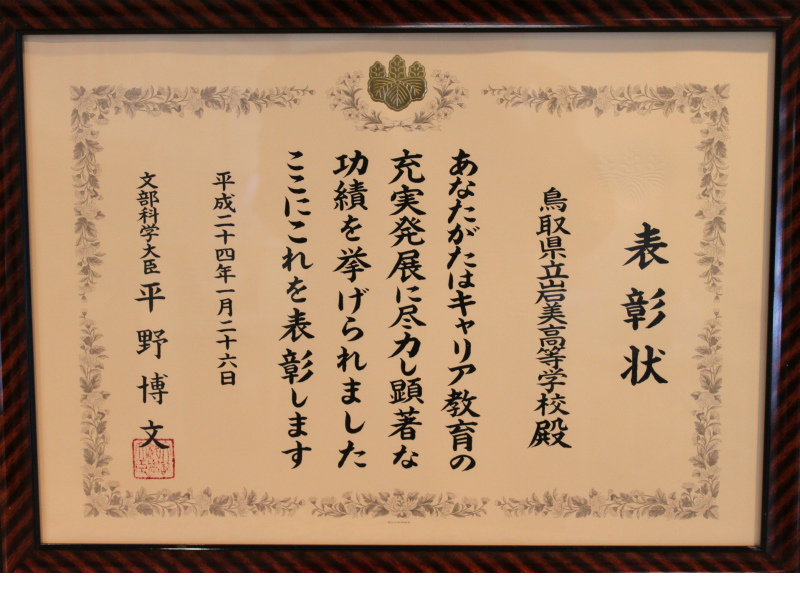 表彰状
鳥取県立岩美高等学校殿
あなたがたはキャリア教育の
充実発展に尽力し顕著な
功績を挙げられました
ここにこれを表彰します
平成二十四年一月二十六日
文部科学大臣 平野博文